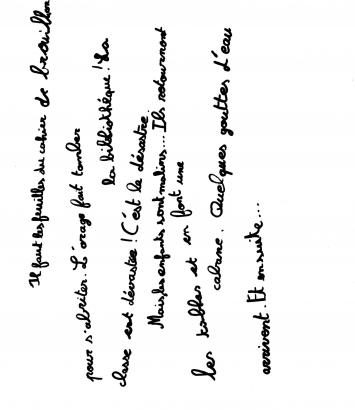 Il faut les feuilles du cahier de brouillon
pour s'abriter. L'orage fait tomber
la bibliothèque ! La
classe est dévastée ! C'est le désastre.
Mais les enfants sont malins... Ils retournent
les tables et en font une
cabane. Quelques gouttes d'eau
arrivent. Et ensuite...